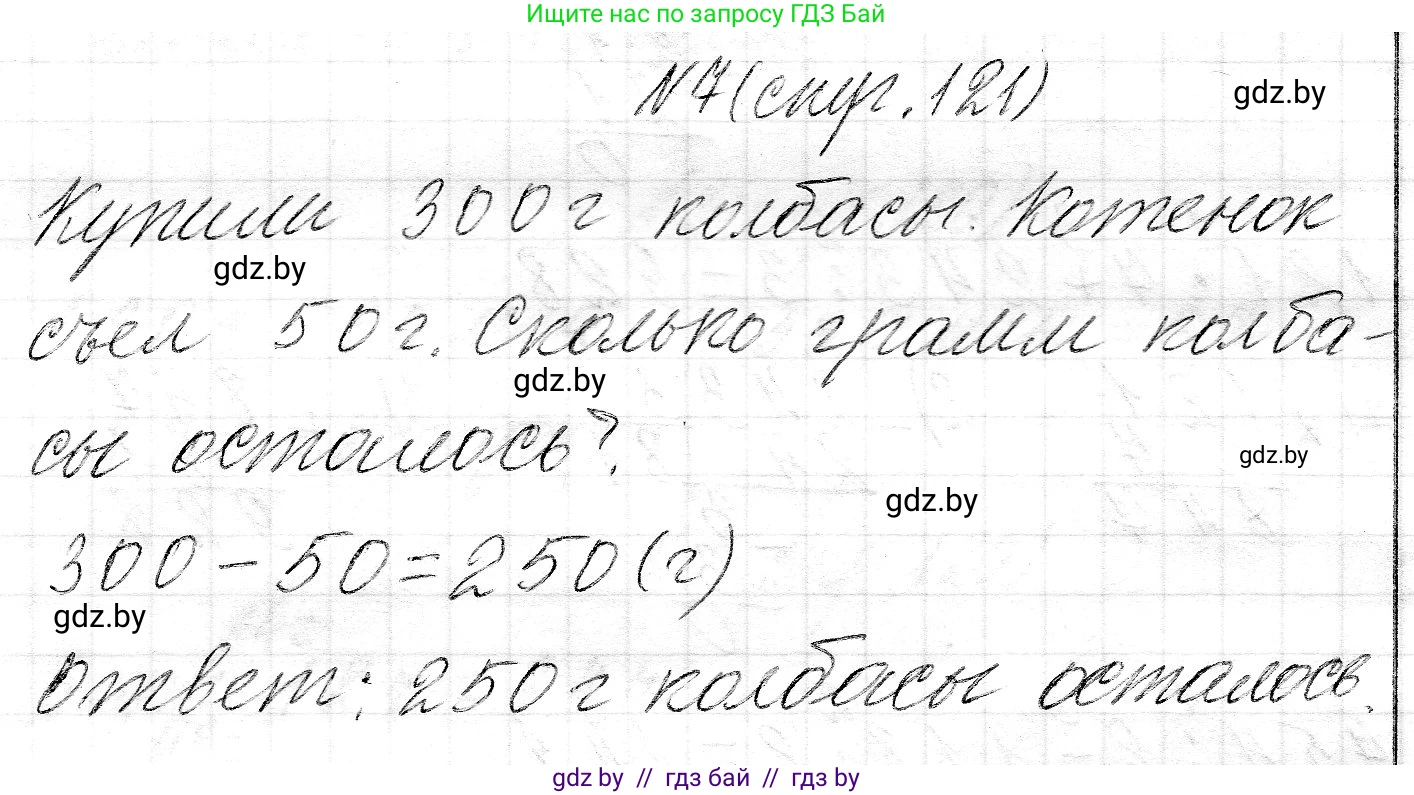 Ищите нас по запросу ГДЗ Бай
№7 (стр. 121)
gdz.by
Купили 300 г колбасы. Котенок
gdz.by
съел 50 г. Сколько грамм колба-
gdz.by
сы осталось?
gdz.by
gdz.by
300 - 50 = 250 (г)
gdz.by
Ответ: 250 г колбасы осталось.
gdz by // гдз бай // гдз by